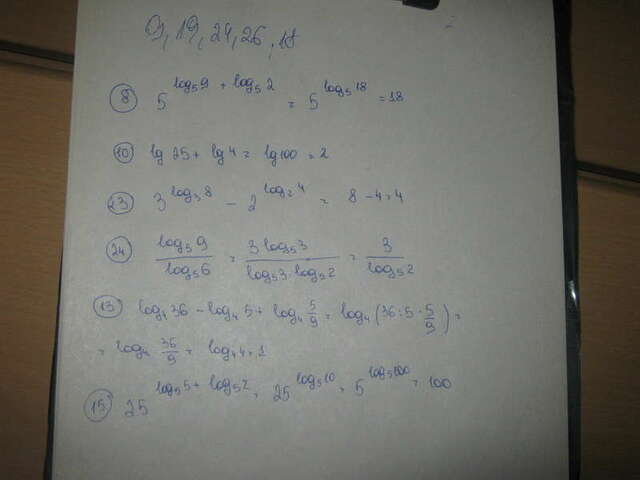 9, 19, 24, 26, 18
⑧ 5^(log₅9 + log₅2) = 5^(log₅18) = 18
⑩ lg 25 + lg 4 = lg 100 = 2
㉓ 3^(log₃8) − 2^(log₂4) = 8 − 4 = 4
㉔ log₅9 / log₅6 = 3 log₅3 / (log₅3 · log₅2) = 3 / log₅2
⑬ log₄36 − log₄5 + log₄ 5/9 = log₄(36 : 5 · 5/9) =
= log₄ · 36/9 = log₄4 = 1
⑮ 25^(log₅5 + log₅2) = 25^(log₅10) = 5^(log₅100) = 100